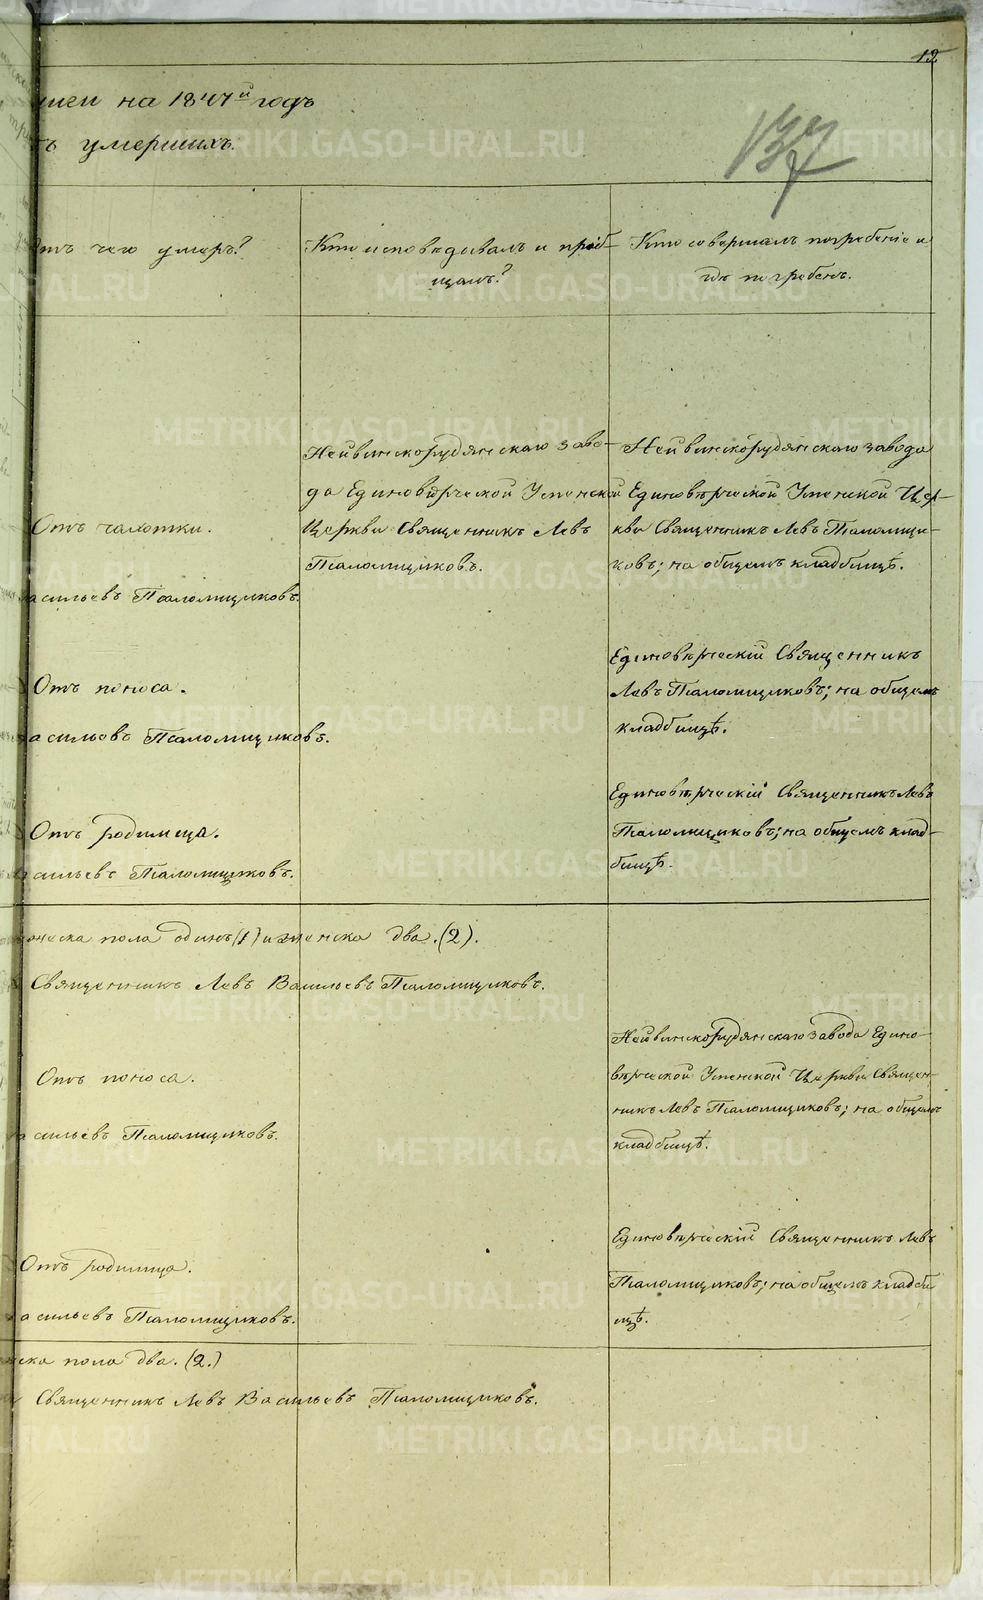 12
137
на 1847й годъ
умершихъ.
Отъ чего умеръ?
Кто исповѣдывалъ и пріоб-
щалъ?
Кто совершалъ погребеніе и
гдѣ погребенъ.
Отъ чахотки.
асильевъ Псаломщиковъ.
Нейвинскорудянскаго заво-
да Единовѣрческой Успенской
Церкви Священникъ Левъ
Псаломщиковъ.
Нейвинскорудянскаго завода
Единовѣрческой Успенской Цер-
кви Священникъ Левъ Псаломщи-
ковъ; на общемъ кладбищѣ.
Отъ поноса.
асильевъ Псаломщиковъ.
Единовѣрческій Священникъ
Левъ Псаломщиковъ; на общемъ
кладбищѣ.
Отъ родимца.
асильевъ Псаломщиковъ.
Единовѣрческій Священникъ Левъ
Псаломщиковъ; на общемъ клад-
бищѣ.
жеска пола одинъ (1) и женска два. (2).
Священникъ Левъ Васильевъ Псаломщиковъ.
Отъ поноса.
асильевъ Псаломщиковъ.
Нейвинскорудянскаго завода Едино-
вѣрческой Успенской Церкви Священ-
никъ Левъ Псаломщиковъ; на общемъ
кладбищѣ.
Отъ родимца.
асильевъ Псаломщиковъ.
Единовѣрческій Священникъ Левъ
Псаломщиковъ; на общемъ кладби
щѣ.
ска пола два. (2.)
Священникъ Левъ Васильевъ Псаломщиковъ.
METRIKI.GASO-URAL.RU